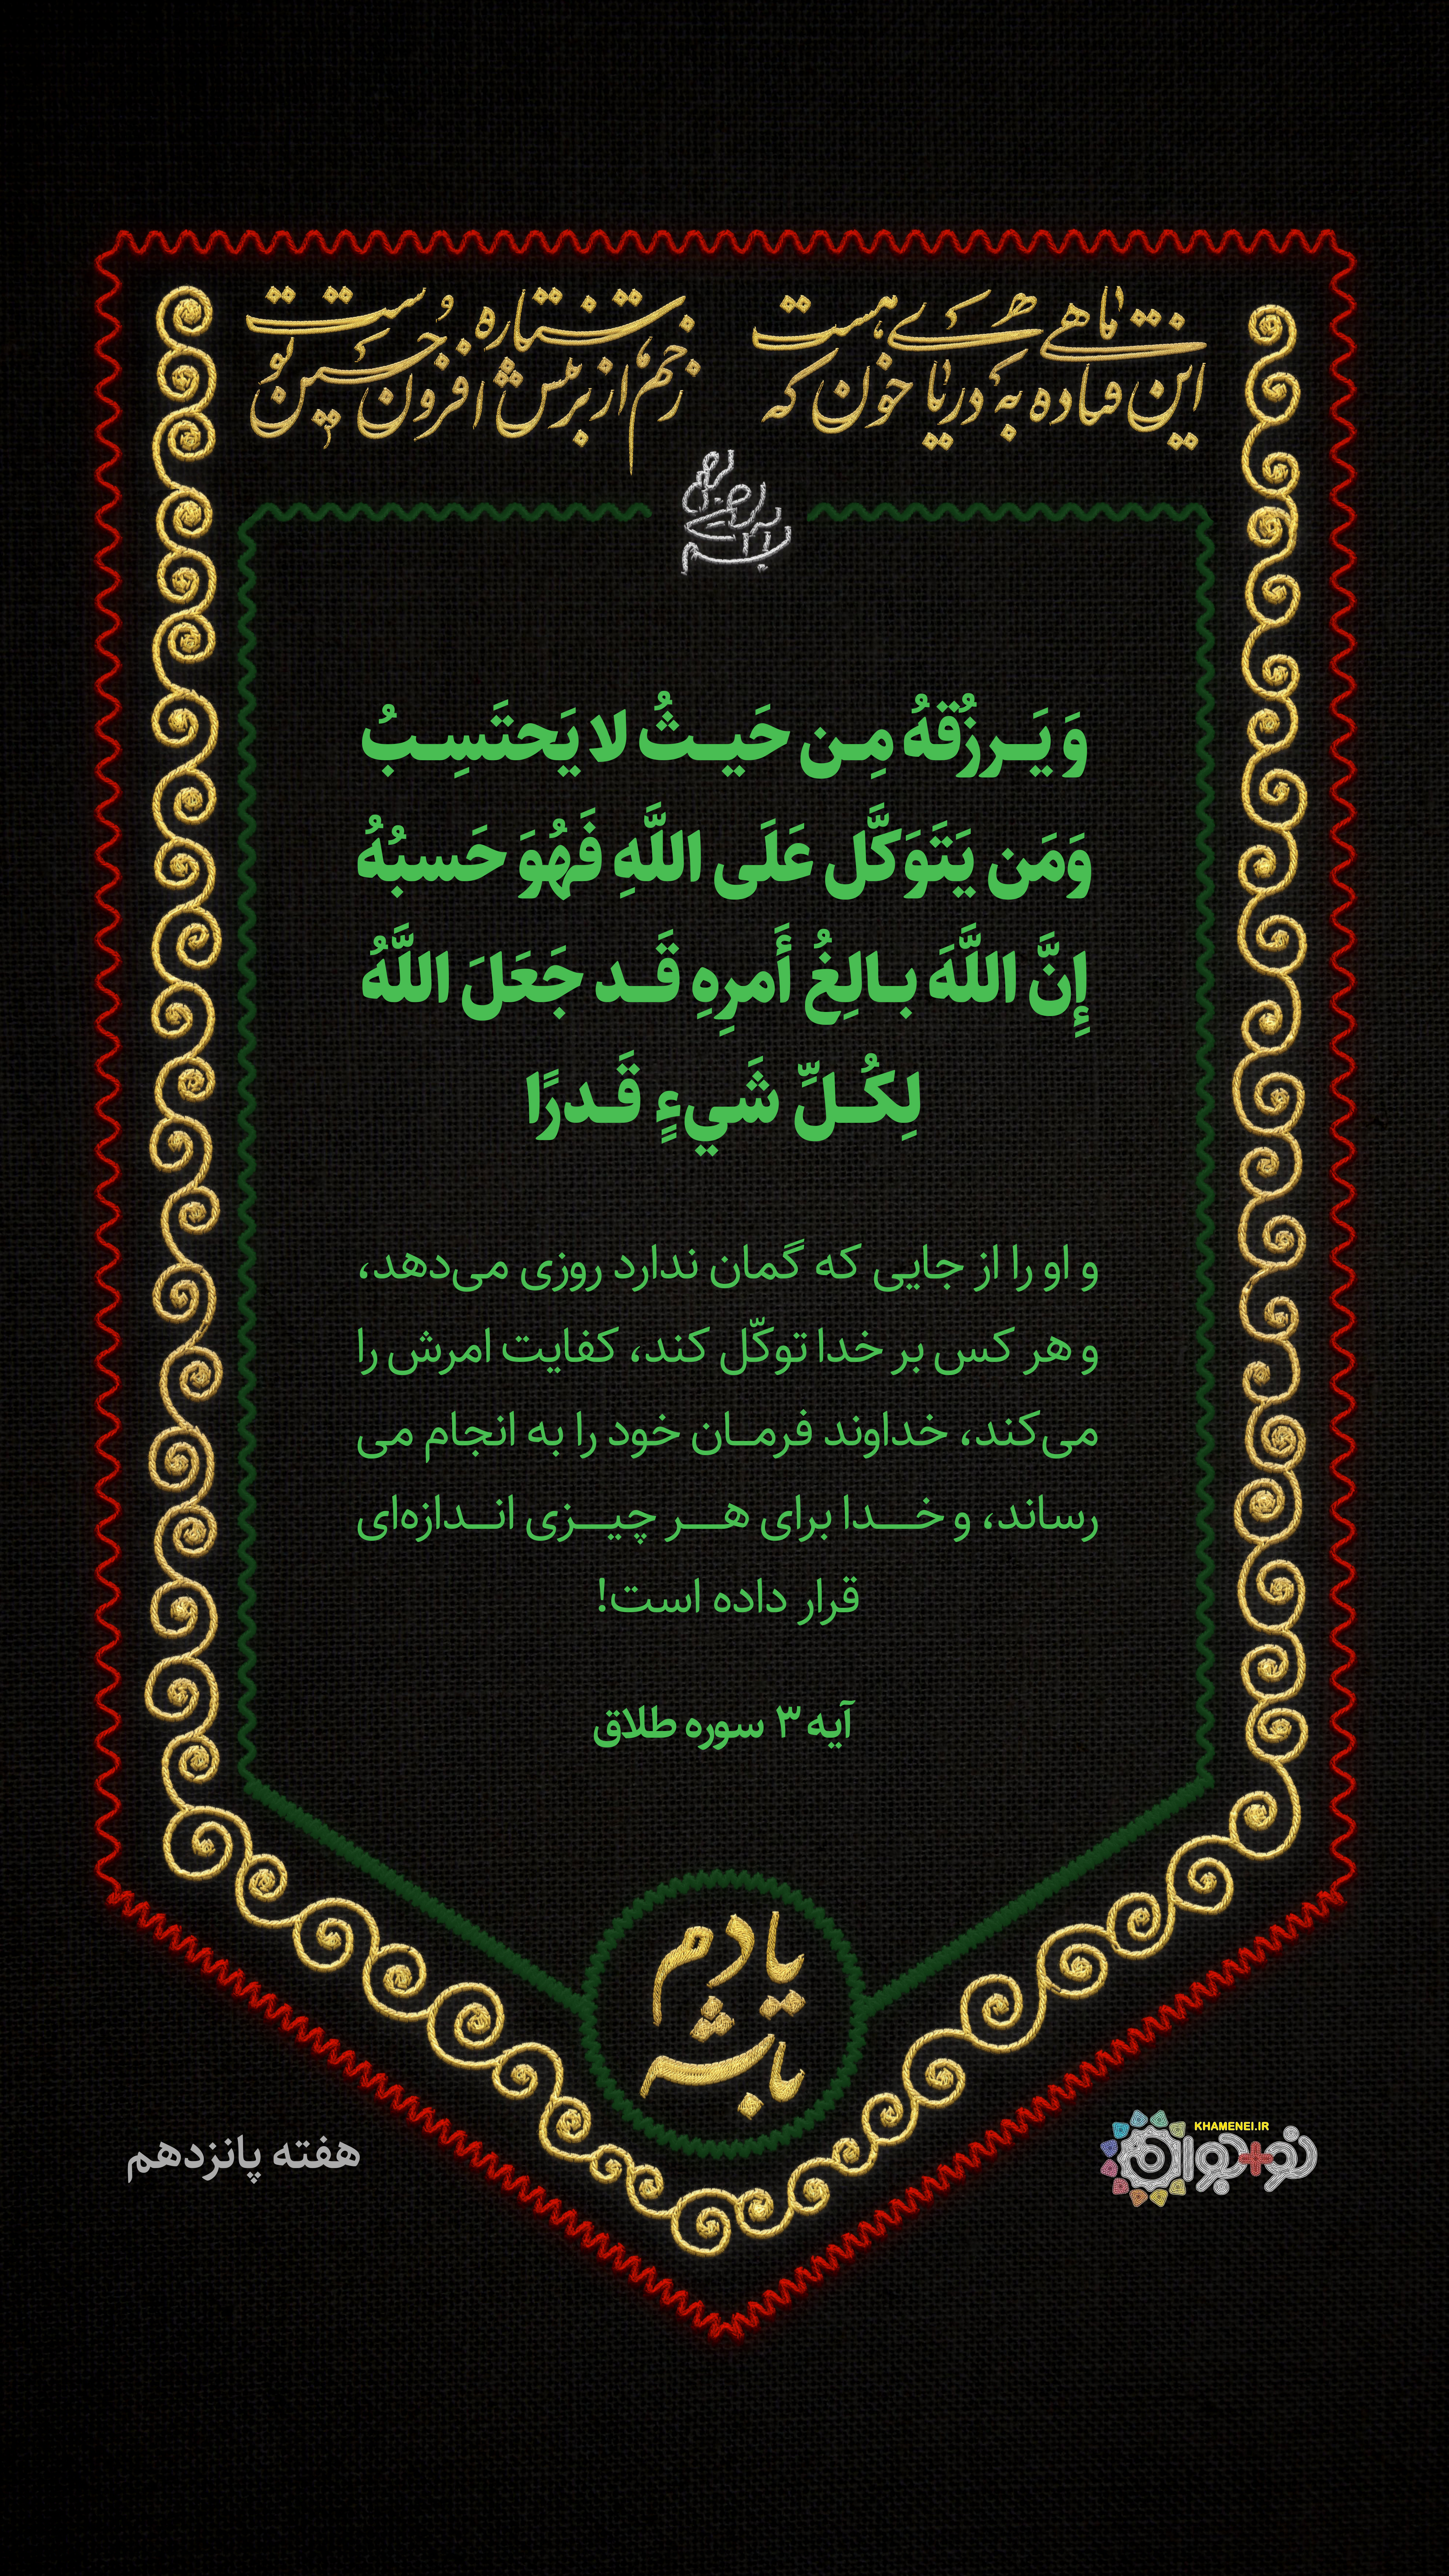 این ماهی فتاده به دریای خون که هست
زخم از ستاره بر تنش افزون حسین توست
بسم الله الرحمن الرحیم
وَ یَـرزُقهُ مِـن حَیـثُ لا یَحتَسِـبُ
وَمَن یَتَوَکَّل عَلَی اللَّهِ فَهُوَ حَسبُهُ
إِنَّ اللَّهَ بـالِغُ أَمرِهِ قَـد جَعَلَ اللَّهُ
لِکُـلِّ شَيءٍ قَـدرًا
و او را از جایی که گمان ندارد روزی می‌دهد،
و هر کس بر خدا توکّل کند، کفایت امرش را
می‌کند، خداوند فرمـان خود را به انجام می
رساند، و خـدا برای هـر چیـزی انـدازه‌ای
قرار داده است!
آیه ۳ سوره طلاق
یادم
باشه
KHAMENEI.IR
نو+جوان
هفته پانزدهم